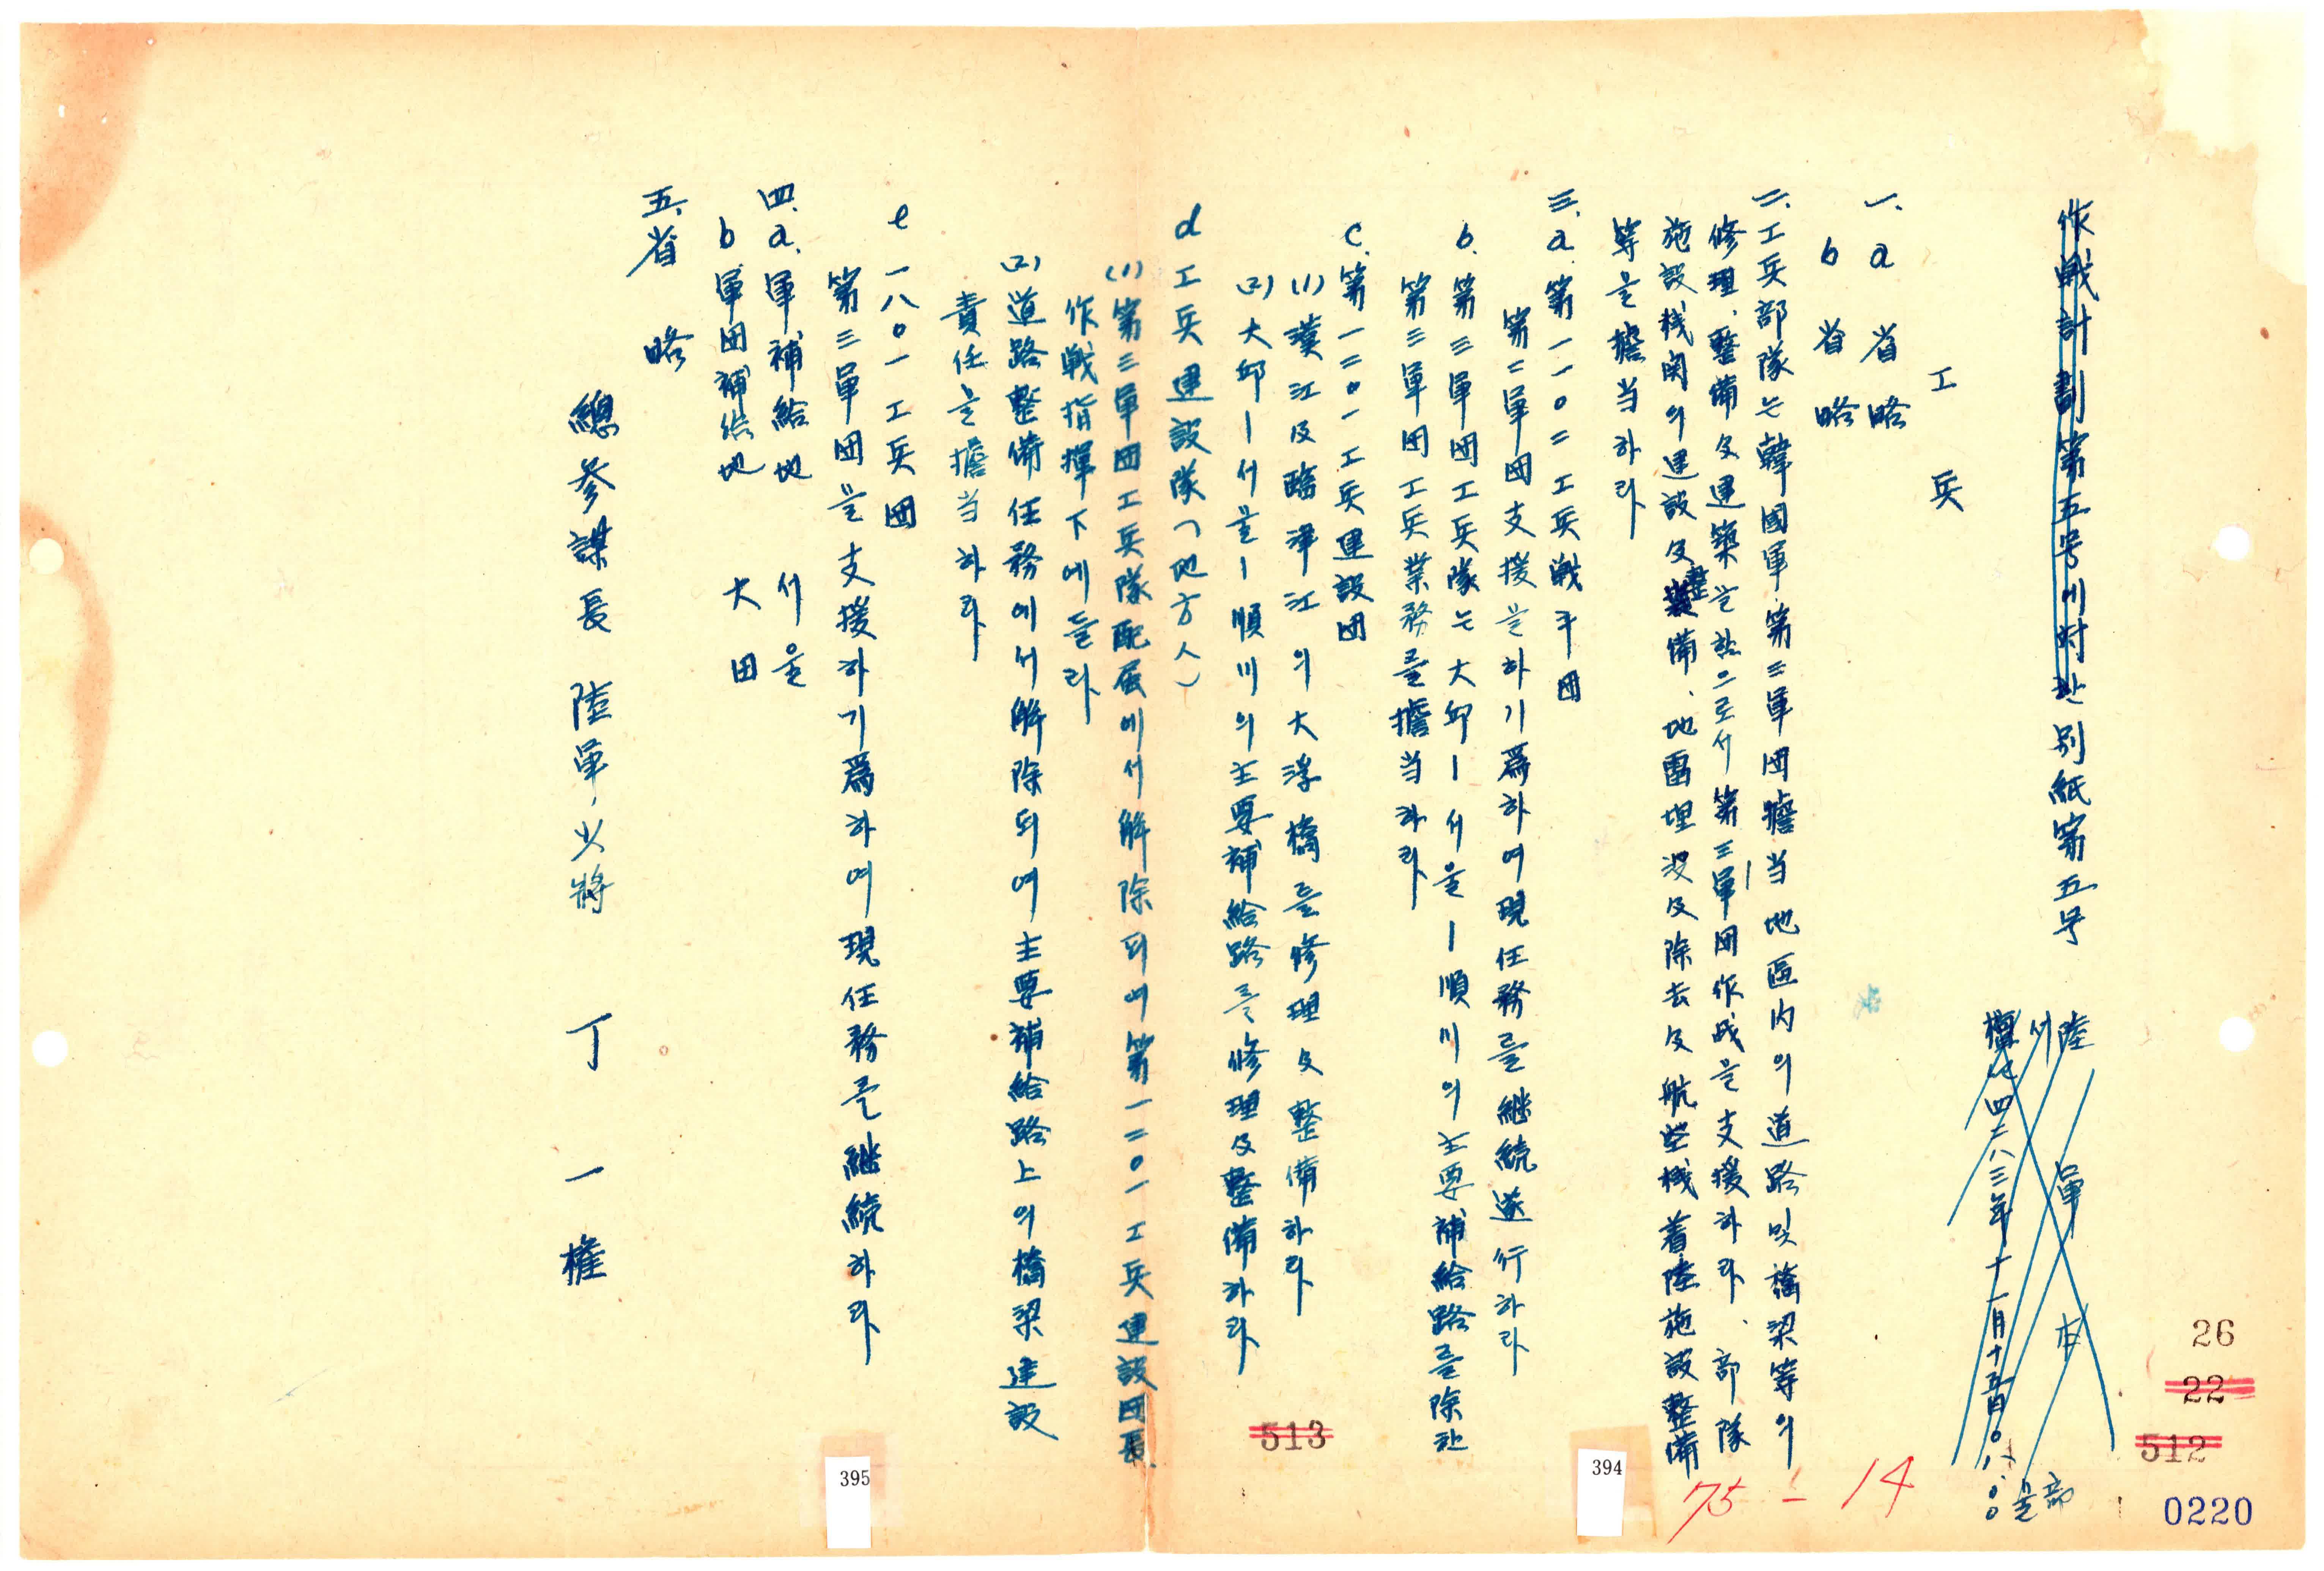 作戦計劃第五号에対한別紙第五号
陸軍本部
서울
檀紀四二八三年十一月十五日0一:00
工兵
一. a 省略
b 省略
二. 工兵部隊는韓國軍第三軍団擔当地區内의道路및橋梁等의
修理、整備及建築을함으로서第三軍団作戦을支援하라、部隊
施設機関의建設及整備、地雷埋没及除去及航空機着陸施設整備
等을擔当하라
三. a. 第一一0二工兵戦斗団
第二軍団支援을하기爲하여現任務를継続遂行하라
b. 第三軍団工兵隊는大邱ー서울ー順川의主要補給路를除한
第三軍団工兵業務를擔当하라
c. 第一二0一工兵建設団
(1) 漢江及臨津江의大浮橋를修理及整備하라
(2) 大邱ー서울ー順川의主要補給路를修理及整備하라
d 工兵建設隊(地方人)
(1) 第三軍団工兵隊配属에서解除되여第一二0一工兵建設団長
作戦指揮下에들라
(2) 道路整備任務에서解除되여主要補給路上의橋梁建設
責任을擔当하라
e 一八0一工兵団
第三軍団을支援하기爲하여現任務를継続하라
四. a. 軍補給地 서울
b 軍団補給地 大田
五. 省略
總参謀長 陸軍少將 丁一權
26
22
512
0220
75-14
394
513
395